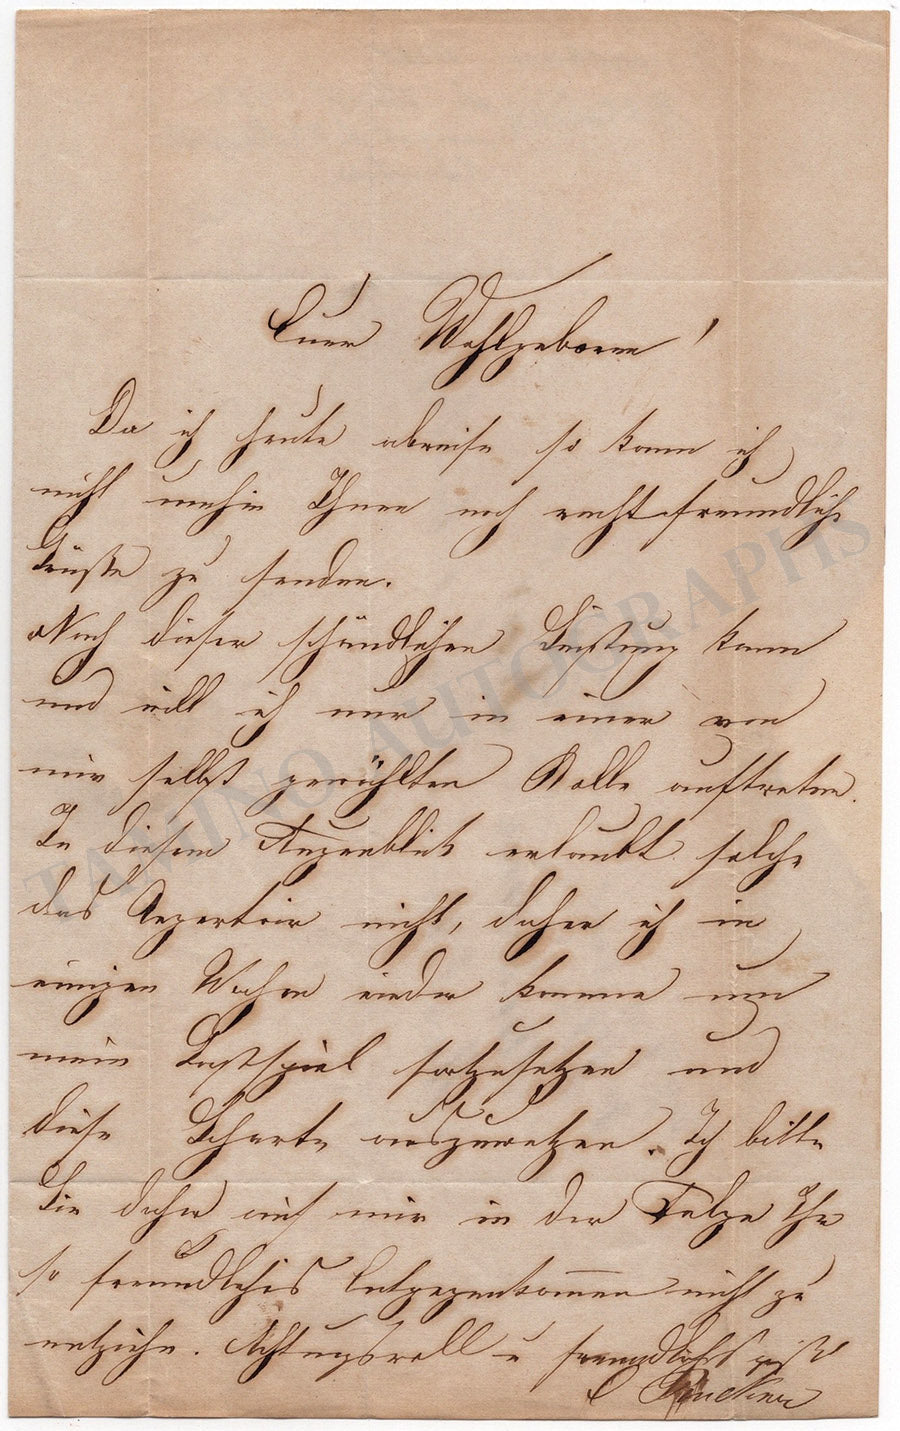 Euer Wohlgeboren!
Da ich heute abreise so kann ich
nicht umhin Ihnen noch recht freundliche
Grüße zu senden.
Nach dieser schändlichen Leistung kann
und will ich nur in einer von
mir selbst gewählten Rolle auftreten.
In diesem Augenblick erlaubt solche
das Repertoir nicht, daher ich in
einigen Wochen wieder komme um
mein Gastspiel fortzusetzen und
diese Scharte auszuwetzen. Ich bitte
Sie daher auch mir in der Folge Ihr
so freundliches Entgegenkommen nicht zu
entziehn. Achtungsvoll u freundlichst grüßt
TAMINO AUTOGRAPHS